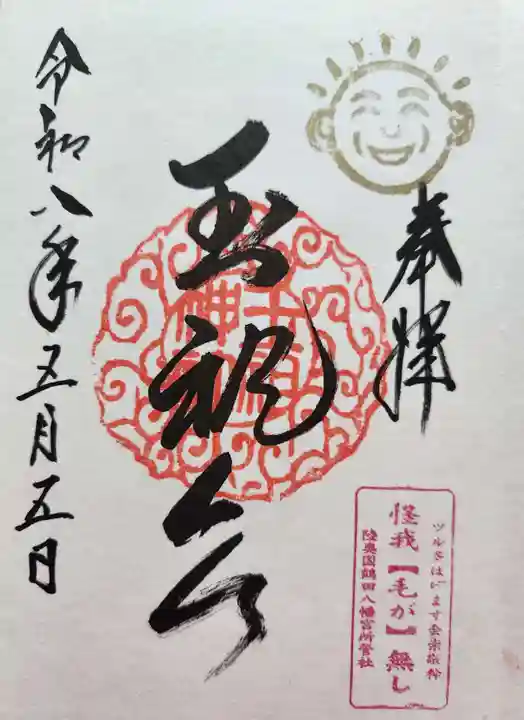 奉拝
玉祖命
令和八年五月五日
ツル多はげます会崇敬神
怪我【毛が】無し
陸奥国鶴田八幡宮所管社